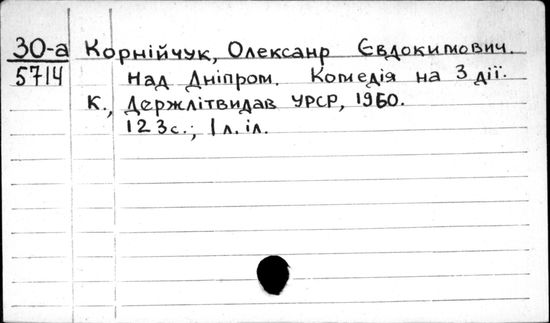 30-а Корнійчук, Олександр Євдокимович.
5714 Над Дніпром. Комедія на 3 дії.
К., Держлітвидав УРСР, 1960.
123с.; 1л. іл.